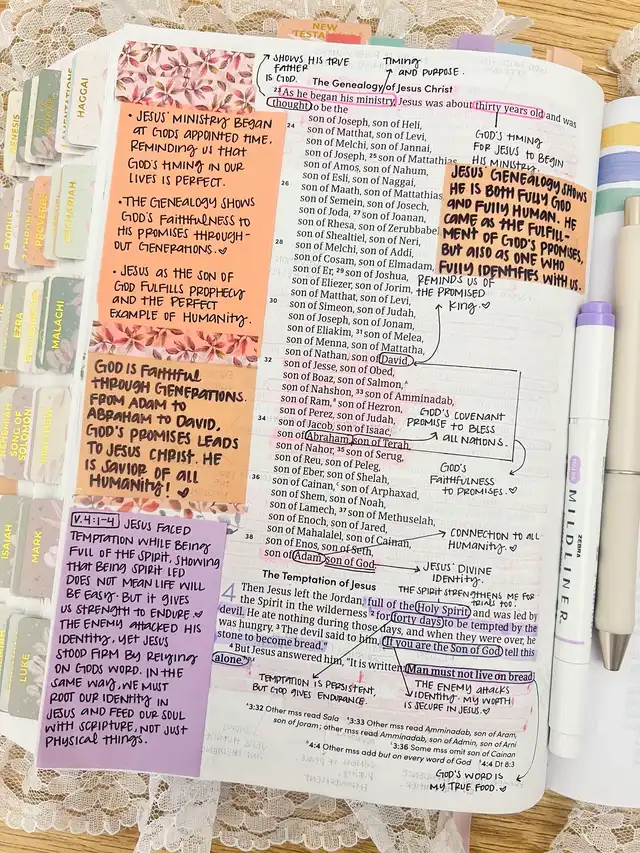 NEW
TESTAMENT
SHOWS HIS TRUE
FATHER
IS GOD.
TIMING
AND PURPOSE.
The Genealogy of Jesus Christ
23 As he began his ministry, Jesus was about thirty years old and was
thought to be the
son of Joseph, son of Heli,
24 son of Matthat, son of Levi,
son of Melchi, son of Jannai,
son of Joseph, 25 son of Mattathias,
son of Amos, son of Nahum,
son of Esli, son of Naggai,
26 son of Maath, son of Mattathias,
son of Semein, son of Josech,
son of Joda, 27 son of Joanan,
son of Rhesa, son of Zerubbabel,
son of Shealtiel, son of Neri,
28 son of Melchi, son of Addi,
son of Cosam, son of Elmadam,
son of Er, 29 son of Joshua,
son of Eliezer, son of Jorim,
son of Matthat, son of Levi,
30 son of Simeon, son of Judah,
son of Joseph, son of Jonam,
son of Eliakim, 31 son of Melea,
son of Menna, son of Mattatha,
son of Nathan, son of David,
32 son of Jesse, son of Obed,
son of Boaz, son of Salmon,
son of Nahshon, 33 son of Amminadab,
son of Ram, son of Hezron,
son of Perez, son of Judah,
34 son of Jacob, son of Isaac,
son of Abraham, son of Terah,
son of Nahor, 35 son of Serug,
son of Reu, son of Peleg,
son of Eber, son of Shelah,
36 son of Cainan, son of Arphaxad,
son of Shem, son of Noah,
son of Lamech, 37 son of Methuselah,
son of Enoch, son of Jared,
son of Mahalalel, son of Cainan,
38 son of Enos, son of Seth,
son of Adam, son of God.
GOD'S TIMING
FOR JESUS TO BEGIN
HIS MINISTRY.
JESUS' GENEALOGY SHOWS
HE IS BOTH FULLY GOD
AND FULLY HUMAN. HE
CAME AS THE FULFILL-
MENT OF GOD'S PROMISES,
BUT ALSO AS ONE WHO
FULLY IDENTIFIES WITH US.
REMINDS US OF
THE PROMISED
KING.♡
GOD'S COVENANT
PROMISE TO BLESS
ALL NATIONS.
GOD'S
FAITHFULNESS
TO PROMISES.♡
CONNECTION TO ALL
HUMANITY.♡
JESUS' DIVINE
IDENTITY.
• JESUS' MINISTRY BEGAN
AT GODS APPOINTED TIME,
REMINDING US THAT
GOD'S TIMING IN OUR
LIVES IS PERFECT.
• THE GENEALOGY SHOWS
GOD'S FAITHFULNESS TO
HIS PROMISES THROUGH-
OUT GENERATIONS.♡
• JESUS AS THE SON OF
GOD FULFILLS PROPHECY
AND THE PERFECT
EXAMPLE OF HUMANITY.
GOD IS FAITHFUL
THROUGH GENERATIONS.
FROM ADAM TO
ABRAHAM TO DAVID,
GOD'S PROMISES LEADS
TO JESUS CHRIST. HE
IS SAVIOR OF ALL
HUMANITY! ♡
V. 4:1-4 JESUS FACED
TEMPTATION WHILE BEING
FULL OF THE SPIRIT, SHOWING
THAT BEING SPIRIT LED
DOES NOT MEAN LIFE WILL
BE EASY. BUT IT GIVES
US STRENGTH TO ENDURE.♡
THE ENEMY ATTACKED HIS
IDENTITY, YET JESUS
STOOD FIRM BY RELYING
ON GODS WORD. IN THE
SAME WAY, WE MUST
ROOT OUR IDENTITY IN
JESUS AND FEED OUR SOUL
WITH SCRIPTURE, NOT JUST
PHYSICAL THINGS.
The Temptation of Jesus
THE SPIRIT STRENGTHENS ME FOR
TRIALS TOO.
4 Then Jesus left the Jordan, full of the Holy Spirit, and was led by
the Spirit in the wilderness 2 for forty days to be tempted by the
devil. He ate nothing during those days, and when they were over, he
was hungry. 3 The devil said to him, "If you are the Son of God, tell this
stone to become bread."
4 But Jesus answered him, "It is written: Man must not live on bread
alone."
TEMPTATION IS PERSISTENT,
BUT GOD GIVES ENDURANCE.
THE ENEMY ATTACKS
IDENTITY. MY WORTH
IS SECURE IN JESUS.♡
3:32 Other mss read Sala
3:33 Other mss read Amminadab, son of Aram,
son of Joram; other mss read Amminadab, son of Admin, son of Arni
3:36 Some mss omit son of Cainan
4:4 Other mss add but on every word of God
4:4 Dt 8:3
GOD'S WORD IS
MY TRUE FOOD.♡
HAGGAI
GENESIS
EXODUS
PROVERBS
ZECHARIAH
EZRA
MALACHI
NEHEMIAH
SONG OF
SOLOMON
ISAIAH
MARK
LUKE
ZEBRA
MILDLINER